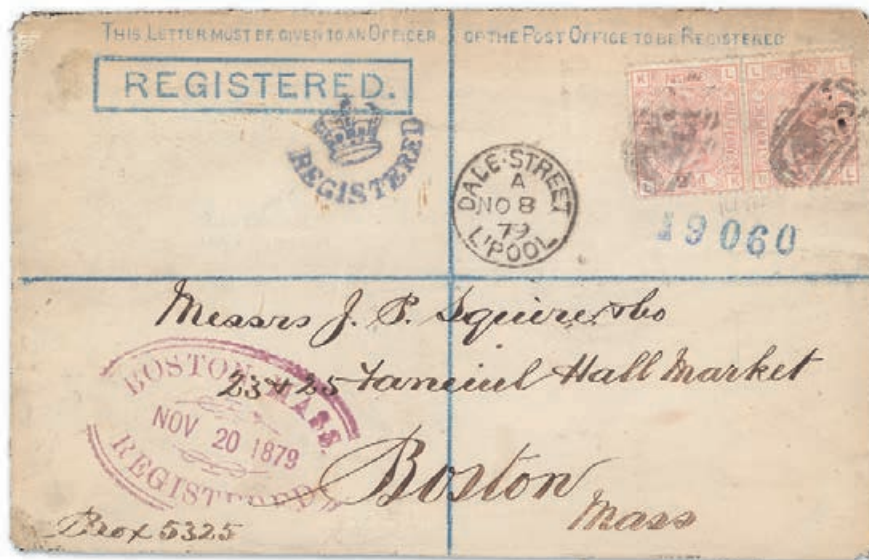 THIS LETTER MUST BE GIVEN TO AN OFFICER OF THE POST OFFICE TO BE REGISTERED
REGISTERED.
REGISTERED
DALE·STREET
A
NO 8
79
L'POOL
19060
Messrs J. P. Squire & Co
23 & 25 Faneuil Hall Market
Boston
Mass
BOSTON, MASS.
NOV 20 1879
REGISTERED
Box 5325